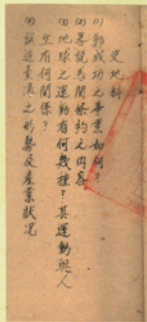 史地科
(1)鄭成功之事業如何？
(2)畧說馬關條約之內容
(3)地球之運動有何幾種？其運動與人
生有何關係？
(4)試述臺灣之形勢及產業狀況